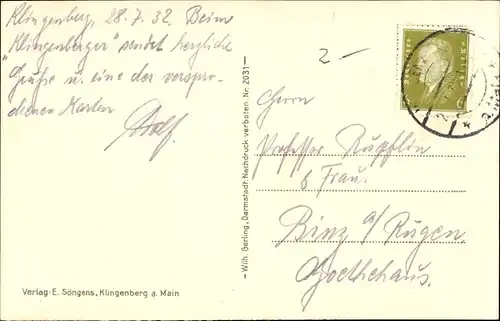 Klingenberg, 28.7.32. Beim
"Klingenberger" sendet herzliche
Grüße u. eine der verspro-
chenen Karten
Wolf.
2-
Herrn
Professor
& Frau.
Binz a/Rügen.
Goethehaus.
— Wilh. Gerling, Darmstadt Nachdruck verboten Nr. 2031 —
Verlag: E. Söngens, Klingenberg a. Main